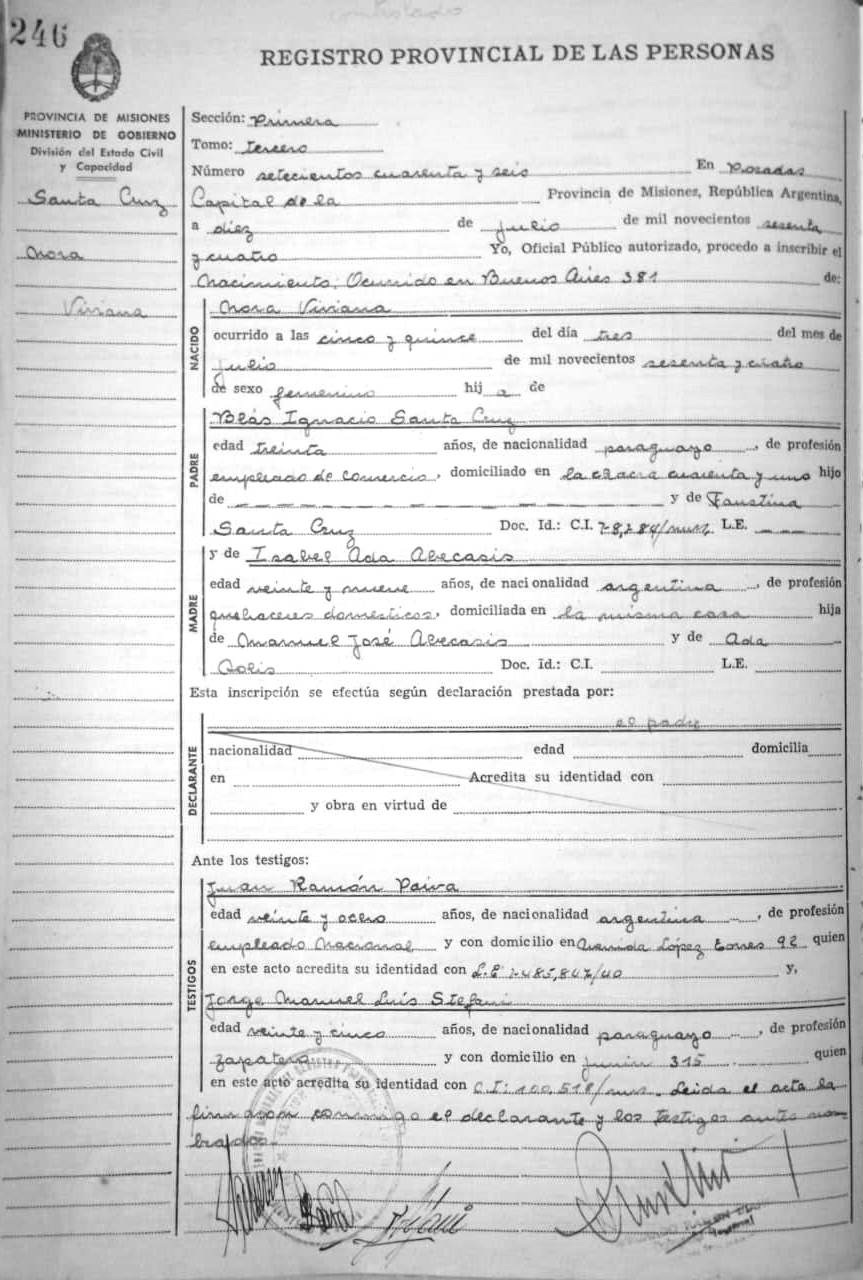 246
REGISTRO PROVINCIAL DE LAS PERSONAS
PROVINCIA DE MISIONES
MINISTERIO DE GOBIERNO
División del Estado Civil
y Capacidad
Santa Cruz
Nora
Viviana
Sección: Primera
Tomo: tercero
Número setecientos cuarenta y seis En Posadas
Capital de la Provincia de Misiones, República Argentina,
a diez de julio de mil novecientos sesenta
y cuatro Yo, Oficial Público autorizado, procedo a inscribir el
Nacimiento; Ocurrido en Buenos Aires 381 de:
NACIDO
Nora Viviana
ocurrido a las cinco y quince del día tres del mes de
Julio de mil novecientos sesenta y cuatro
de sexo femenino hij a de
PADRE
Blás Ignacio Santa Cruz
edad treinta años, de nacionalidad paraguayo, de profesión
empleado de comercio, domiciliado en la chacra cuarenta y uno hijo
de — — — — y de Faustina
Santa Cruz Doc. Id.: C.I. L.E. — —
MADRE
y de Isabel Ada Abecasis
edad veinte y nueve años, de nacionalidad argentina, de profesión
quehaceres domesticos, domiciliada en la misma casa hija
de Manuel José Abecasis y de Ada
Doc. Id.: C.I. L.E.
Esta inscripción se efectúa según declaración prestada por:
DECLARANTE
el padre
nacionalidad edad domicilia
en Acredita su identidad con
y obra en virtud de
Ante los testigos:
TESTIGOS
Juan Ramón Paiva
edad veinte y ocho años, de nacionalidad argentina, de profesión
empleado Nacional y con domicilio en Avenida López torres 92 quien
en este acto acredita su identidad con L.E 7.485,847/40 y,
Jorge Manuel Luis Stefani
edad veinte y cinco años, de nacionalidad paraguayo, de profesión
zapatero y con domicilio en junin 315 quien
en este acto acredita su identidad con C.I: 100,518/mnes. Leida el acta la
firmaron conmigo el declarante y los testigos ante nom
brados.